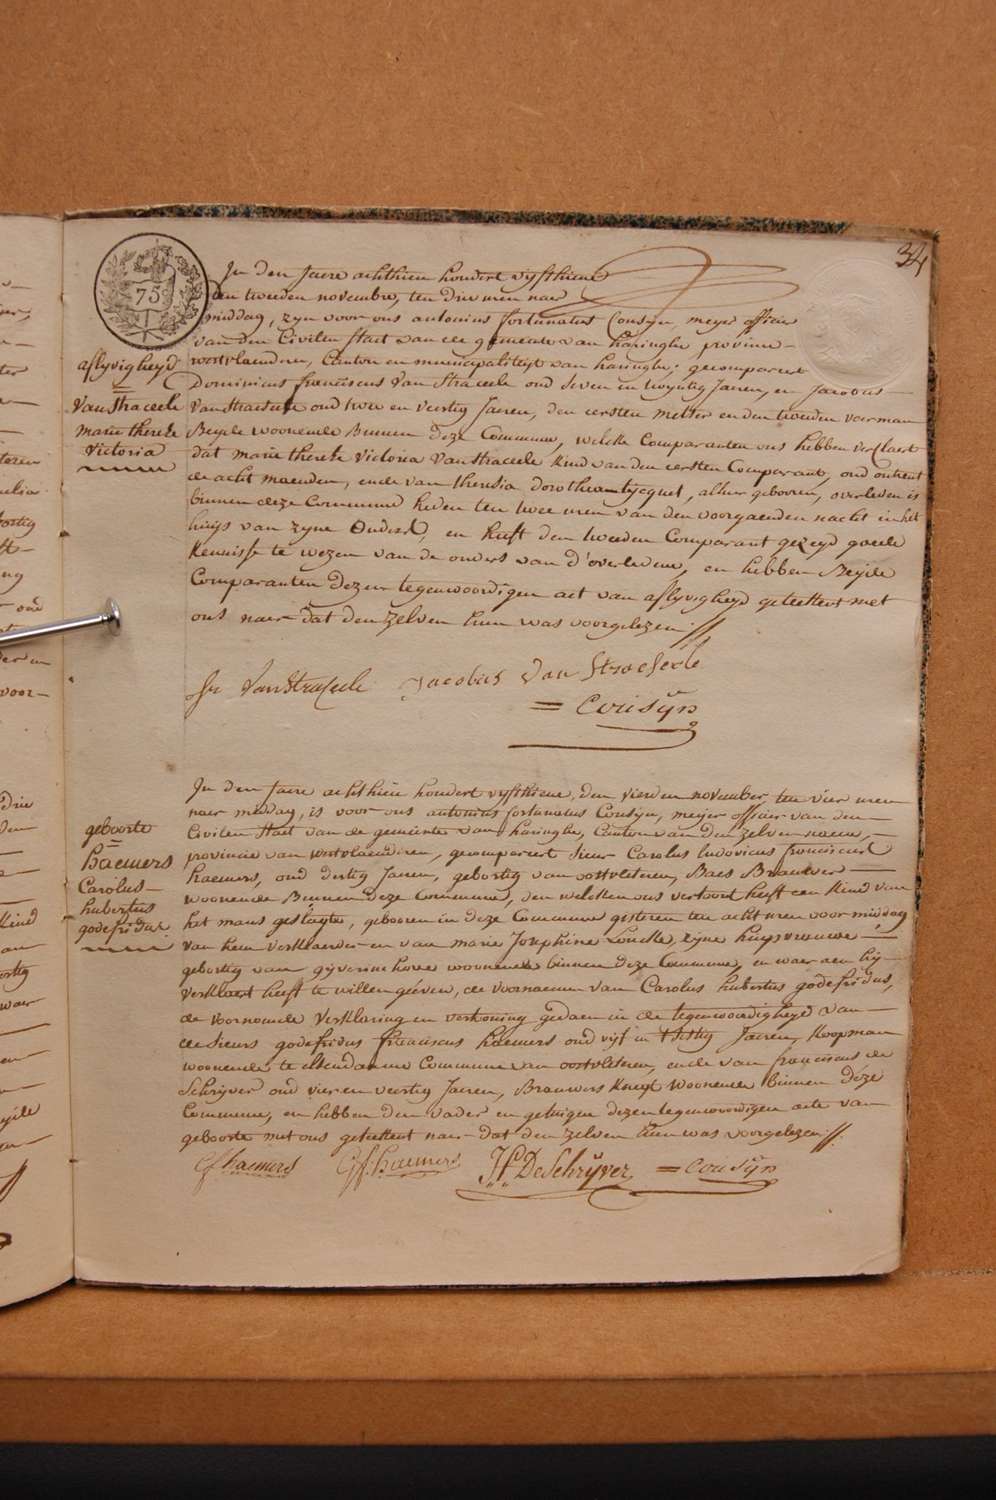 34
75
In den Jaere achthien hondert vyfthiene
den tweeden novembre, ten drie uren naer
middag, zyn voor ons antonius fortunatus Cousyn, meyer officier
van den Civilen staet van de gemeente van haringhe provincie
westvlaenderen, Canton en municipaliteyt van haringhe; gecompareert
aflyvigheyd
Dominicus franciscus Van Straceele oud seven en twyntig Jaeren, en Jacobus
Van Straceele
Van Straesele oud twee en veertig Jaeren, den eersten metser en den tweeden voerman
marie therese
Beyde woonende Binnen deze Commune, welcke Comparanten ons hebben verclaert
Victoria
dat marie therese Victoria Van Straceele kind van den eersten Comparant, oud ontrent
de acht maenden, ende van theresia dorothea tycquet, alhier gebooren, overleden is
binnen deze Commune heden ten twee uren van den voorgaenden nacht in het
huys van zyne Ouders, en heeft den tweeden Comparant gezeyd goede
kennisse te wezen van de ouders van d'overledene, en hebben Beyde
Comparanten dezen tegenwoordigen act van aflyvigheyd geteekent met
ons naer dat den zelven hun was voorgelezen //
Vanstraceele Jacobus Van Straeserle
= Cousyn
In den Jaere achthien hondert vyfthiene, den vierden november, ten vier uren
naer middag, is voor ons antonius fortunatus Cousyn, meyer officier van den
geboorte
Civilen staet van de gemeente van haringhe, Canton van den zelven naeme,
haemers
provincie van westvlaenderen, gecompareert Sieur Carolus ludovicus franciscus
Carolus
haemers, oud dertig Jaeren, gebortig van oostvleteren, Baes Brauwer
hubertus
woonende Binnen deze Commune, den welcken ons vertoont heeft een kind van
godefridus
het mans geslagte, gebooren in deze Commune gisteren ten acht uren voor middag
van hem verklaerder en van marie Josephine Loucke, zyne huysvrouwe
gebortig van gyverinchove woonende binnen deze Commune, en waer aen hy
verklaert heeft te willen geéven, de voornaemen van Carolus hubertus godefridus,
de voornoemde verklaring en vertooning gedaen in de tegenwoordigheyd van
de sieurs godefridus franciscus haemers oud vyf en Jaeren, koopman
woonende te Commune van oostvleteren, ende van franciscus de
Schrijver oud vier en veertig Jaeren, Brauwers knegt woonende binnen déze
Commune, en hebben den vader en getuigen dezen tegenwoordigen acte van
geboorte met ons geteekent naer dat den zelven hun was voorgelezen //.
haemers G f. haemers DeSchrijver = cousyn